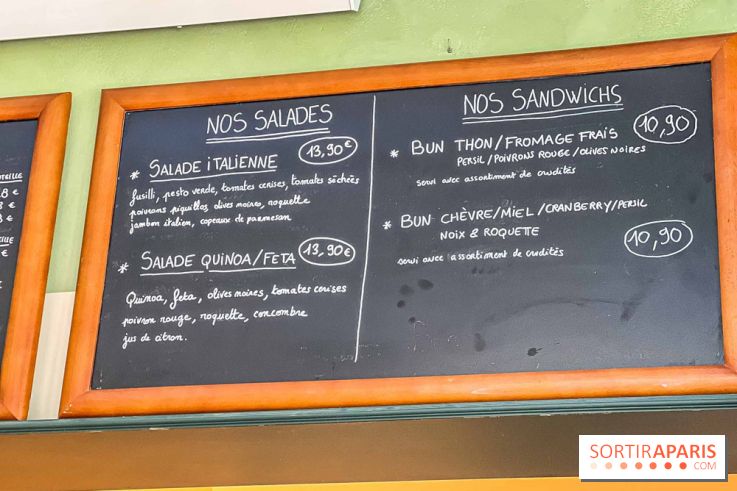 NOS SALADES
* SALADE iTALIENNE 13,90€
fusilli, pesto verde, tomates cerises, tomates séchées
poivrons piquillos, olives noires, roquette
jambon italien, copeaux de parmesan
* SALADE QUINOA/FETA 13,90€
Quinoa, feta, olives noires, tomates cerises
poivron rouge, roquette, concombre
jus de citron.
NOS SANDWICHS
* BUN THON/FROMAGE FRAIS 10,90
PERSIL/POIVRONS ROUGE/OLIVES NOIRES
servi avec assortiment de crudités
* BUN CHÈVRE/MIEL/CRANBERRY/PERSIL
NOIX & ROQUETTE 10,90
servi avec assortiment de crudités
SORTIRAPARIS
.COM